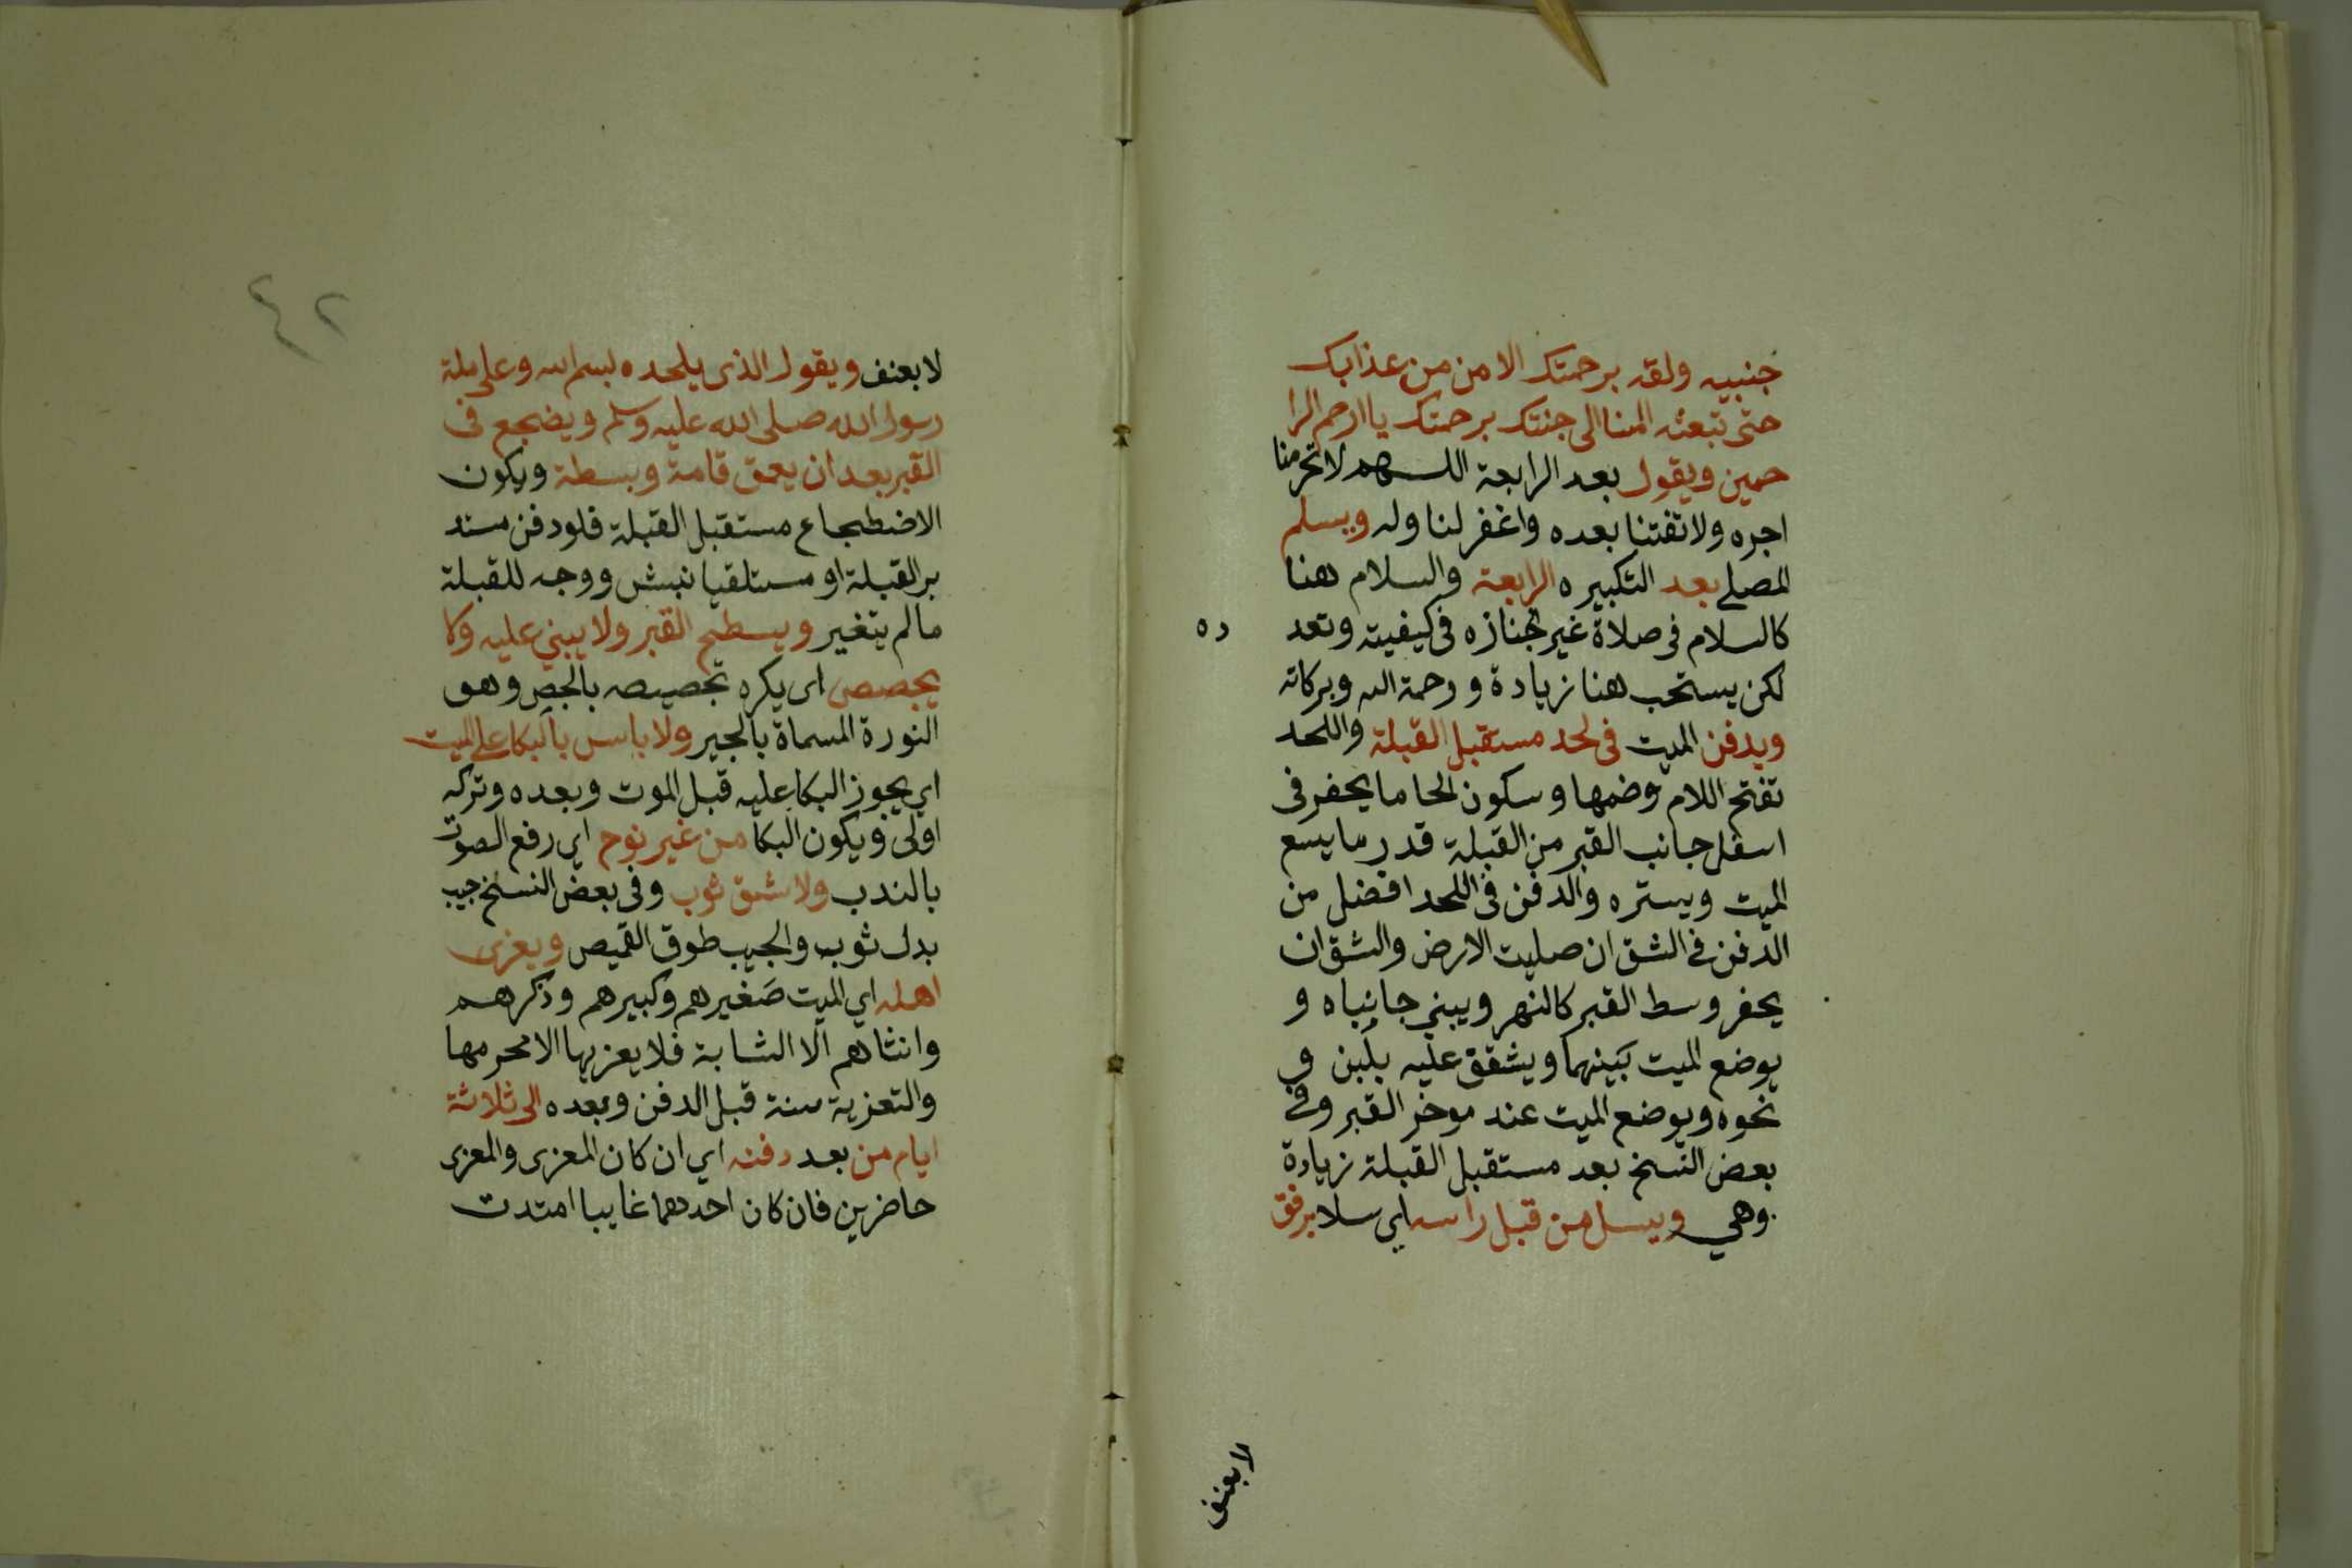 جنبيه ولقه برحمتك الامن من عذابك
حتى تبعثه امنا الى جنتك برحمتك ياارحم الرا
حمين ويقول بعد الرابعة اللهم لاتحرمنا
اجره ولاتفتنا بعده واغفر لنا وله ويسلم
المصلي بعد التكبيره الرابعة والسلام هنا
كالسلام في صلاة غير الجنازه في كيفيته وتعد
ده
لكن يستحب هنا زيادة ورحمة الله وبركاته
ويدفن الميت في لحد مستقبل القبلة واللحد
تفتح اللام وضمها وسكون الحا ما يحفر في
اسفل جانب القبر من القبلة قدر ما يسع
الميت ويستره والدفن في اللحد افضل من
الدفن في الشق ان صلبت الارض والشق ان
يحفر وسط القبر كالنهر ويبني جانباه و
يوضع الميت بينهما ويشقق عليه بلبن و
نحوه ويوضع الميت عند موخر القبر وفي
بعض النسخ بعد مستقبل القبلة زيادة
وهي ويسل من قبل راسه اي سلا برفق
لا بعنف
٤٢
لا بعنف ويقول الذي يلحده بسم الله وعلى ملة
رسول الله صلى الله عليه وسلم ويضجع في
القبر بعد ان يعمق قامة وبسطة ويكون
الاضطجاع مستقبل القبلة فلو دفن مستد
بر القبلة او مستلقيا نبش ووجه للقبلة
مالم يتغير ويسطح القبر ولا يبني عليه ولا
يجصص اي يكره تجصيصه بالجص وهو
النورة المسماة بالجير ولا باس بالبكا على الميت
اي يجوز البكا عليه قبل الموت وبعده وتركه
اولى ويكون البكا من غير نوح اي رفع الصوت
بالندب ولا شق ثوب وفي بعض النسخ جيب
بدل ثوب والجيب طوق القميص ويعزى
اهله اي الميت صغيرهم وكبيرهم وذكرهم
وانثاهم الا الشابة فلا يعزيها الا محرمها
والتعزية سنة قبل الدفن وبعده الى ثلاثة
ايام من بعد دفنه اي ان كان المعزى والمعزى
حاضرين فان كان احدهما غايبا امتدت